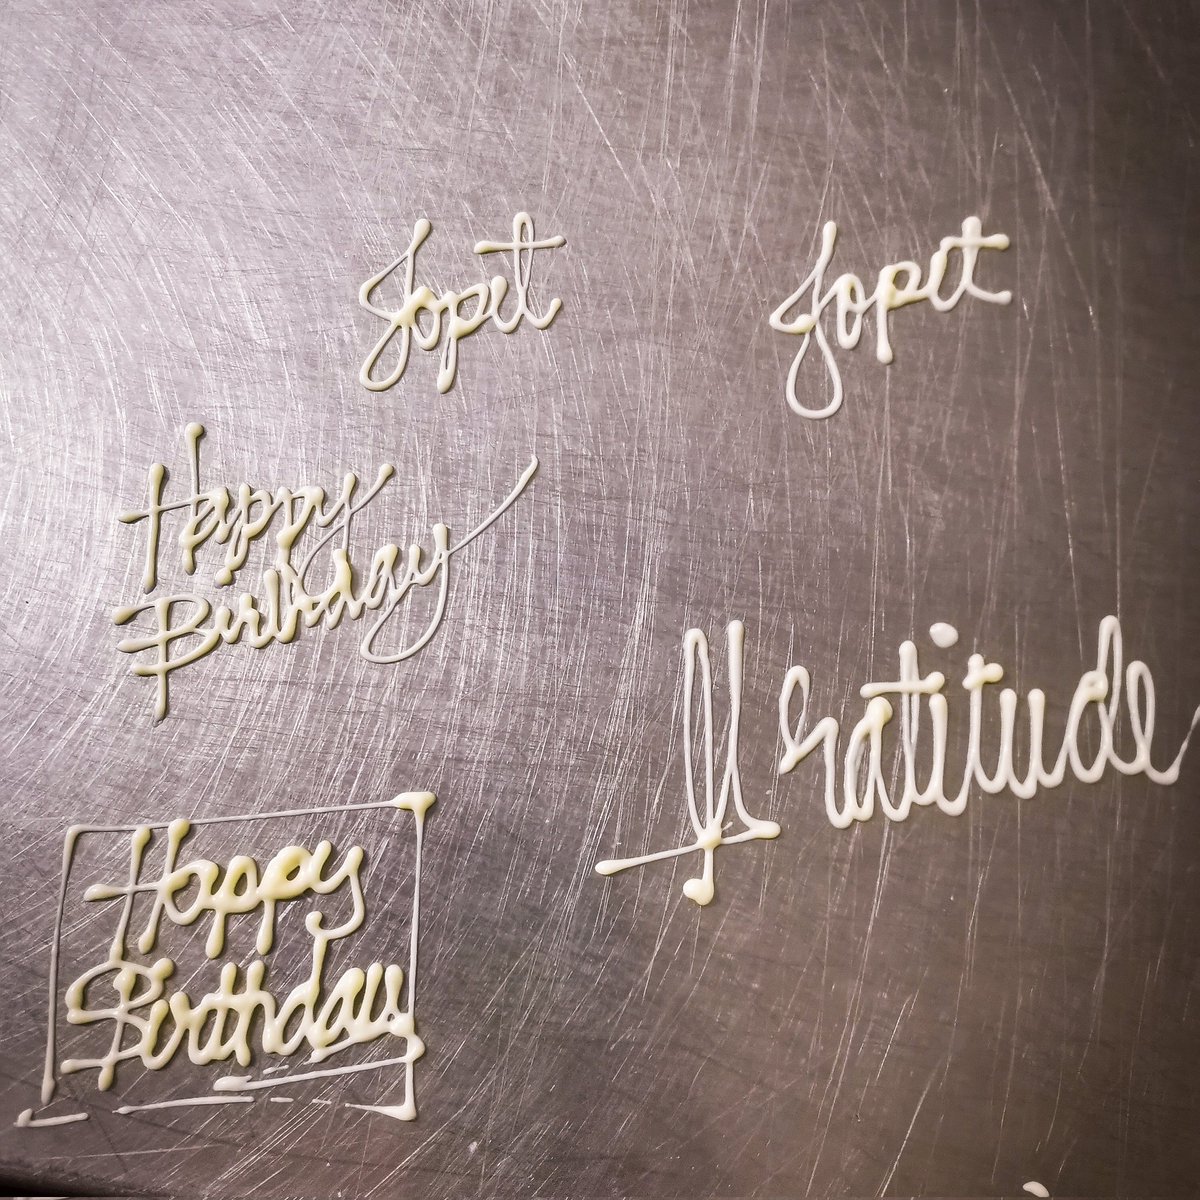 Jopit
Jopit
Happy
Birthday
Gratitude
Happy
Birthday